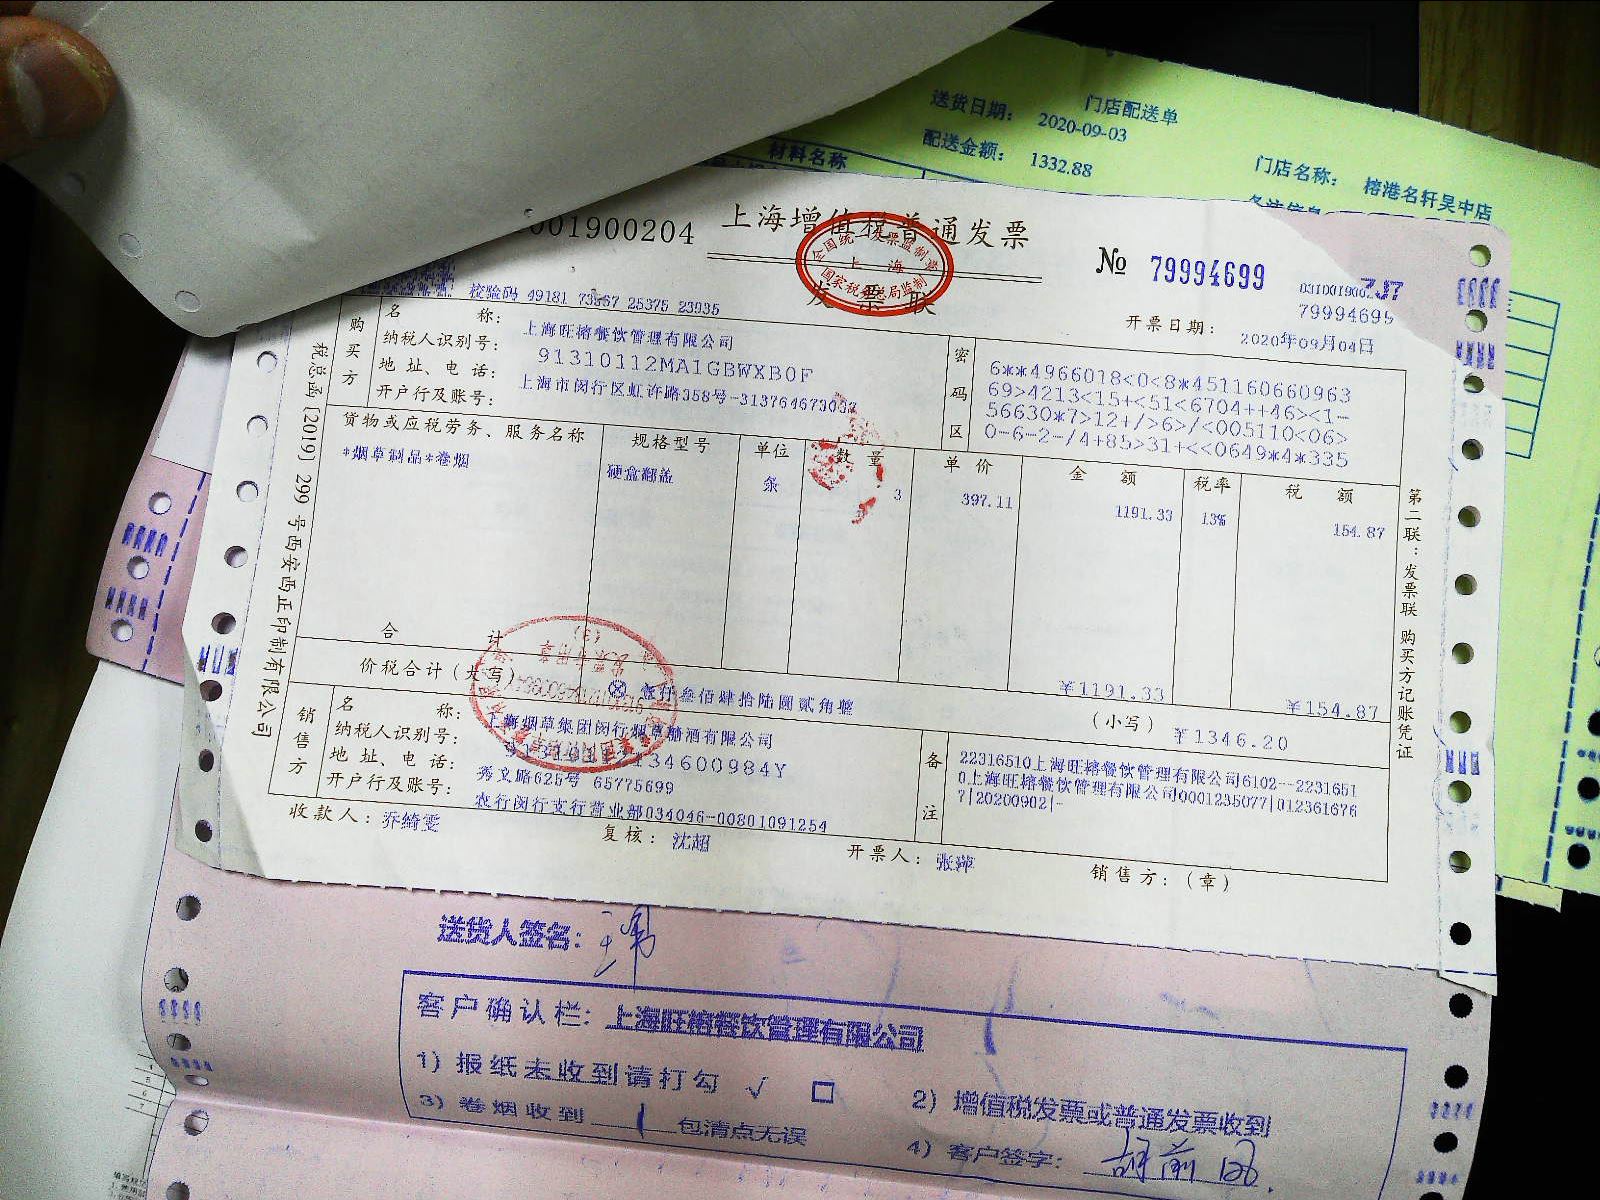 门店配送单
送货日期: 2020-09-03
配送金额: 1332.88
门店名称: 榕港名轩吴中店
材料名称
001900204
上海增值税普通发票
全国统一发票监制章
上海
国家税务总局监制
发票联
№ 79994699
79994699
校验码 49181 73567 25375 23935
开票日期: 2020年09月04日
购买方
名称: 上海旺榕餐饮管理有限公司
纳税人识别号: 91310112MA1GBWXB0F
地址、电话: 上海市闵行区虹许路358号-313764673037
开户行及账号:
密码区
6**4966018<0<8*451160660963
69>4213<15+<51<6704++46><1-
56630*7>12+/>6>/<005110<06>
0-6-2-/4+85>31+<<0649*4*335
货物或应税劳务、服务名称 规格型号 单位 数量 单价 金额 税率 税额
*烟草制品*卷烟 硬盒翻盖 条 3 397.11 1191.33 13% 154.87
合计 ¥1191.33 ¥154.87
价税合计(大写) ⊗ 壹仟叁佰肆拾陆圆贰角整 (小写) ¥1346.20
销售方
名称: 上海烟草集团闵行烟草糖酒有限公司
纳税人识别号: 134600984Y
地址、电话: 秀文路625号 65775699
开户行及账号: 农行闵行支行营业部034046-00801091254
备注
22316510上海旺榕餐饮管理有限公司6102--2231651
0上海旺榕餐饮管理有限公司0001235077|012361676
7|20200902|-
收款人: 乔绮雯 复核: 沈超 开票人: 张萍 销售方: (章)
税总函[2019] 299 号西安西正印制有限公司
第二联: 发票联 购买方记账凭证
发票专用章
(3)
送货人签名:
客户确认栏: 上海旺榕餐饮管理有限公司
1) 报纸未收到请打勾 √ □
2) 增值税发票或普通发票收到
3) 卷烟收到 1 包清点无误
4) 客户签字: